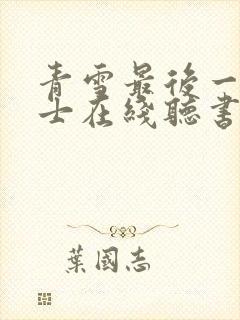 青雪最後一
士在綫聽書
葉國志